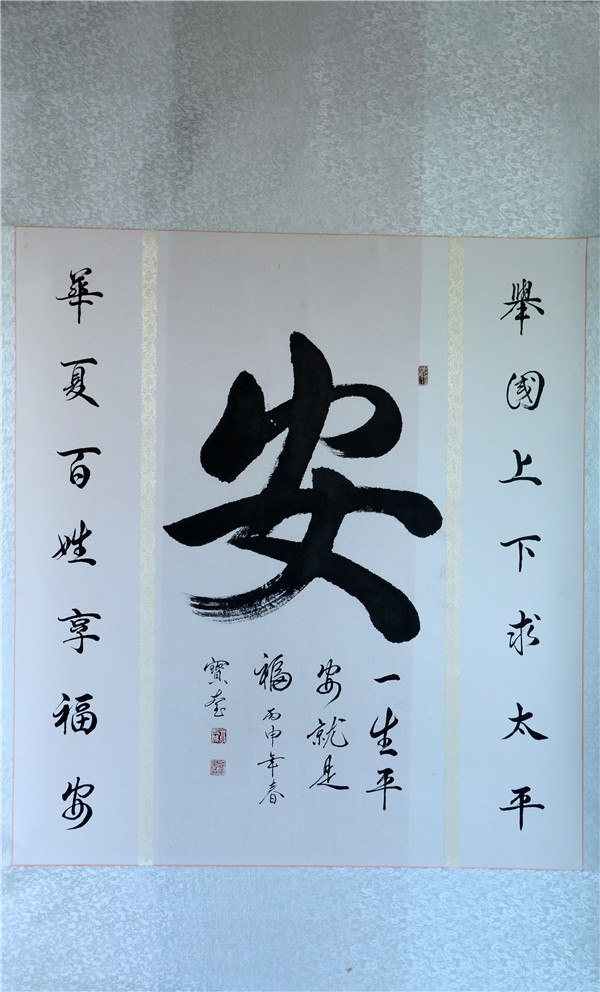 舉國上下求太平
安
一生平
安就是
福丙申年春
寶奎
華夏百姓享福安